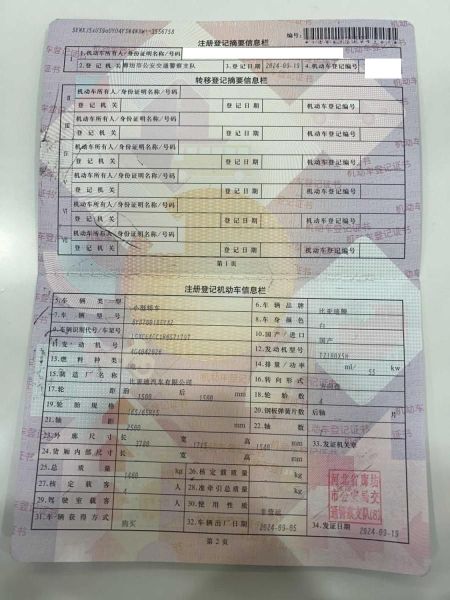 注册登记摘要信息栏
编号:
1.机动车所有人/身份证明名称/号码
2.登记机关 廊坊市公安交通警察支队 3.登记日期 2024-09-19 4.机动车登记编号
转移登记摘要信息栏
Ⅱ 机动车所有人/身份证明名称/号码
登记机关 登记日期 机动车登记编号
Ⅲ 机动车所有人/身份证明名称/号码
登记机关 登记日期 机动车登记编号
Ⅳ 机动车所有人/身份证明名称/号码
登记机关 登记日期 机动车登记编号
Ⅴ 机动车所有人/身份证明名称/号码
登记机关 登记日期 机动车登记编号
Ⅵ 机动车所有人/身份证明名称/号码
登记机关 登记日期 机动车登记编号
Ⅶ 机动车所有人/身份证明名称/号码
登记机关 登记日期 机动车登记编号
第1页
注册登记机动车信息栏
5.车辆类型 小型轿车 6.车辆品牌 比亚迪牌
7.车辆型号 8.车身颜色 白
9.车辆识别代号/车架号 10.国产/进口 国产
11.发动机号 12.发动机型号
13.燃料种类 电 14.排量/功率 ml/ 55 kw
15.制造厂名称 比亚迪汽车有限公司 16.转向形式 方向盘
17.轮距 前 1500 后 1500 mm 18.轮胎数 4
19.轮胎规格 165/65R15 20.钢板弹簧片数 后轴 片
21.轴距 2500 mm 22.轴数 2
23.外廓尺寸 长 3780 宽 1715 高 1540 mm 33.发证机关章
24.货厢内部尺寸 长 宽 高 mm
25.总质量 kg 26.核定载质量 kg
27.核定载客 4 人 28.准牵引总质量 kg
29.驾驶室载客 人 30.使用性质 非营运
31.车辆获得方式 购买 32.车辆出厂日期 2024-09-05 34.发证日期 2024-09-19
河北省廊坊
市公安局交
通警察支队(8)
第2页